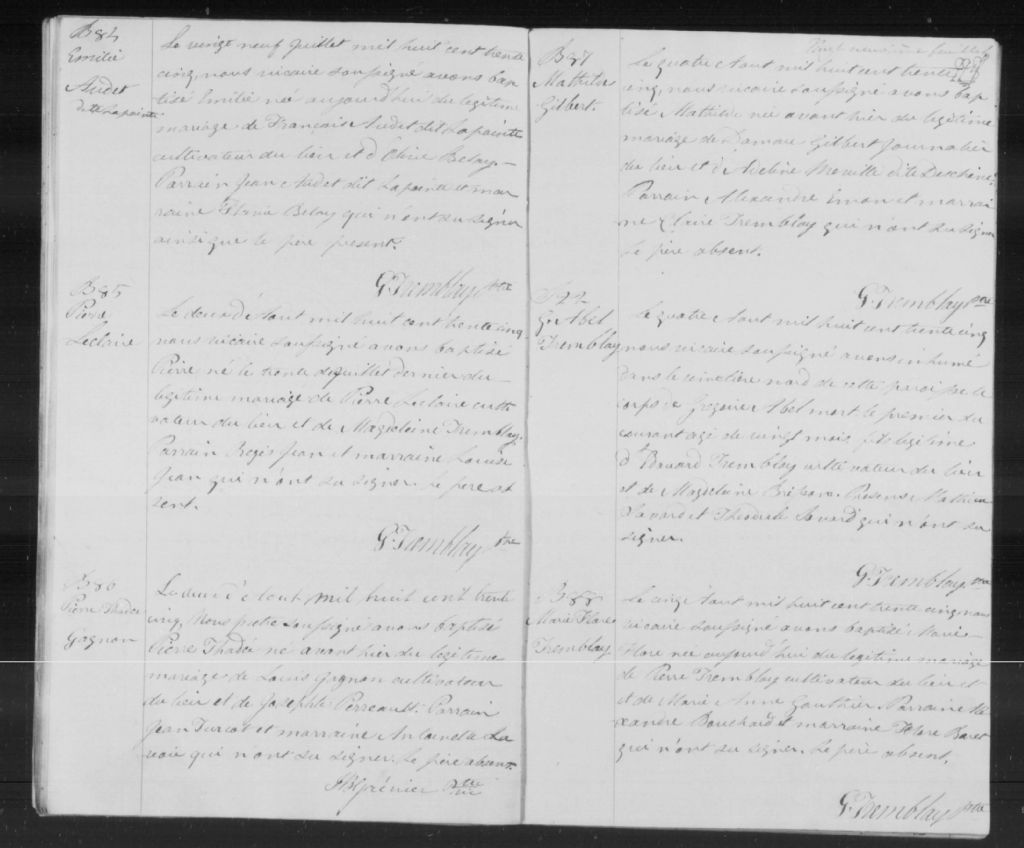 B84
Emilie
Audet
dite Lapointe
Le vingt neuf Juillet mil huit cent trente
cinq, nous vicaire soussigné avons bap
tisé Emilie née aujourd'hui du légitime
mariage de François Audet dit Lapointe
cultivateur du lieu et d'
Parrain Jean Audet dit Lapointe et mar
raine qui n'ont su signer
ainsi que le père present.
G. Tremblay Ptre
B85
Pierre
Leclaire
Le deux d'Aout mil huit cent trente cinq
nous vicaire soussigné avons baptisé
Pierre né le trente de Juillet dernier du
légitime mariage de Pierre Leclaire culti
vateur du lieu et de Magdeleine Tremblay.
Parrain Jean et marraine Louise
Jean qui n'ont su signer. Le père ab
sent.
G. Tremblay Ptre
B86
Pierre Thadée
Gagnon
Le deux d'Aout mil huit cent trente
cinq, Nous prêtre soussigné avons baptisé
Pierre Thadée né avant hier du légitime
mariage de Louis Gagnon cultivateur
du lieu et de Josephte Perreault. Parrain
Jean Turcot et marraine La
voie qui n'ont su signer. Le père absent.
Grénier Ptre
B87
Mathilde
Gilbert.
Le quatre Aout mil huit cent trente
cinq, nous vicaire soussigné avons bap
tisé Mathilde née avant hier du légitime
mariage de Gilbert journalier
du lieu et d'Adeline dite
Parrain Alexandre et marrai
ne Claire Tremblay qui n'ont su signer
Le père absent.
G. Tremblay Ptre
S22
Gr. Abel
Tremblay
Le quatre Aout mil huit cent trente cinq
nous vicaire soussigné avons inhumé
dans le cimetière nord de cette paroisse le
corps de Grégoire Abel mort le premier du
courant agé de vingt mois fils légitime
d'Edouard Tremblay cultivateur du lieu
et de Magdelaine Présens Mathieu
Savard et Théodule Savard qui n'ont su
signer.
G. Tremblay Ptre
B88
Marie Flore
Tremblay
Le cinq Aout mil huit cent trente cinq, nous
vicaire soussigné avons baptisé Marie
Flore née aujourd'hui du légitime mariage
de Pierre Tremblay cultivateur du lieu et
et de Marie Anne Gauthier. Parraine Ale
xandre Bouchard et marraine Flore
qui n'ont su signer. Le père absent.
G. Tremblay Ptre